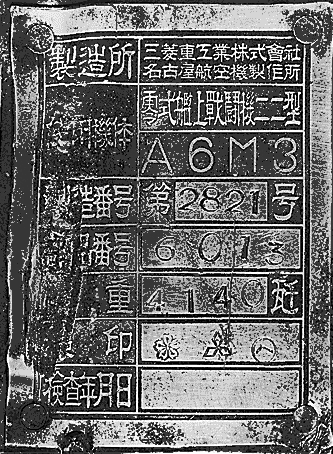 製造所 三菱重工業株式會社
名古屋航空機製作所
零式艦上戰鬪機二二型
A6M3
製造番号 第2821号
番号 6013
重 4140瓩
印
検査年月日